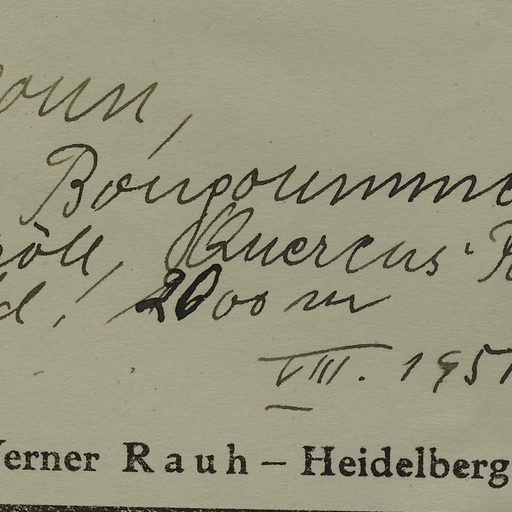 oun,
Bougoummme
röll, Quercus-
d! 2000 m
VIII. 1951
Werner Rauh – Heidelberg